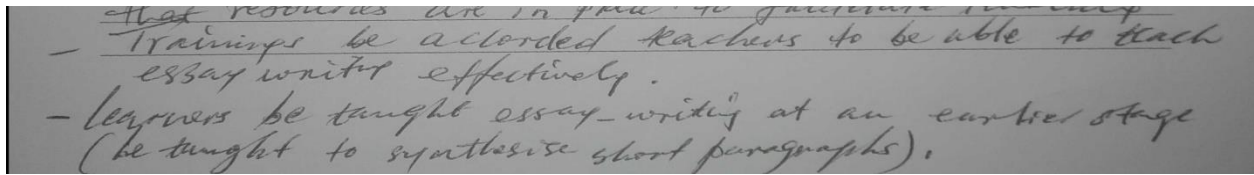 that resources are in place to facilitate
- Trainings be accorded teachers to be able to teach
essay writing effectively.
- learners be taught essay-writing at an earlier stage
(be taught to synthesise short paragraphs).